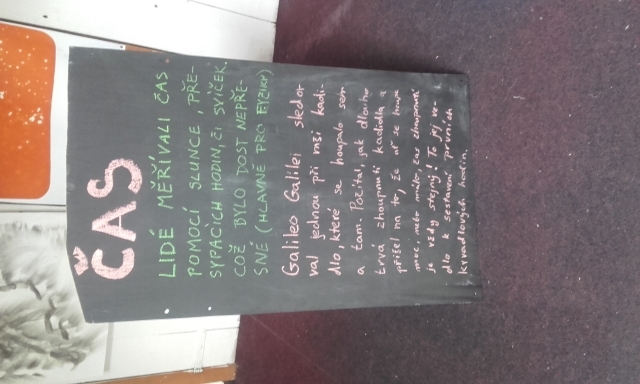 ČAS
LIDÉ MĚŘÍVALI ČAS
POMOCÍ SLUNCE, PŘE-
SYPACÍCH HODIN, ČI SVÍČEK.
COŽ BYLO DOST NEPŘE-
SNÉ (HLAVNĚ PRO FYZIKY)
Galileo Galilei sledo-
val jednou při mši kadi-
dlo, které se houpalo sem
a tam. Počítal, jak dlouho
trvá zhoupnutí kadidla a
přišel na to, že ať se houpe
moc, nebo málo, čas zhoupnutí
je vždy stejný! To jej ve-
dlo k sestavení prvních
kyvadlových hodin.